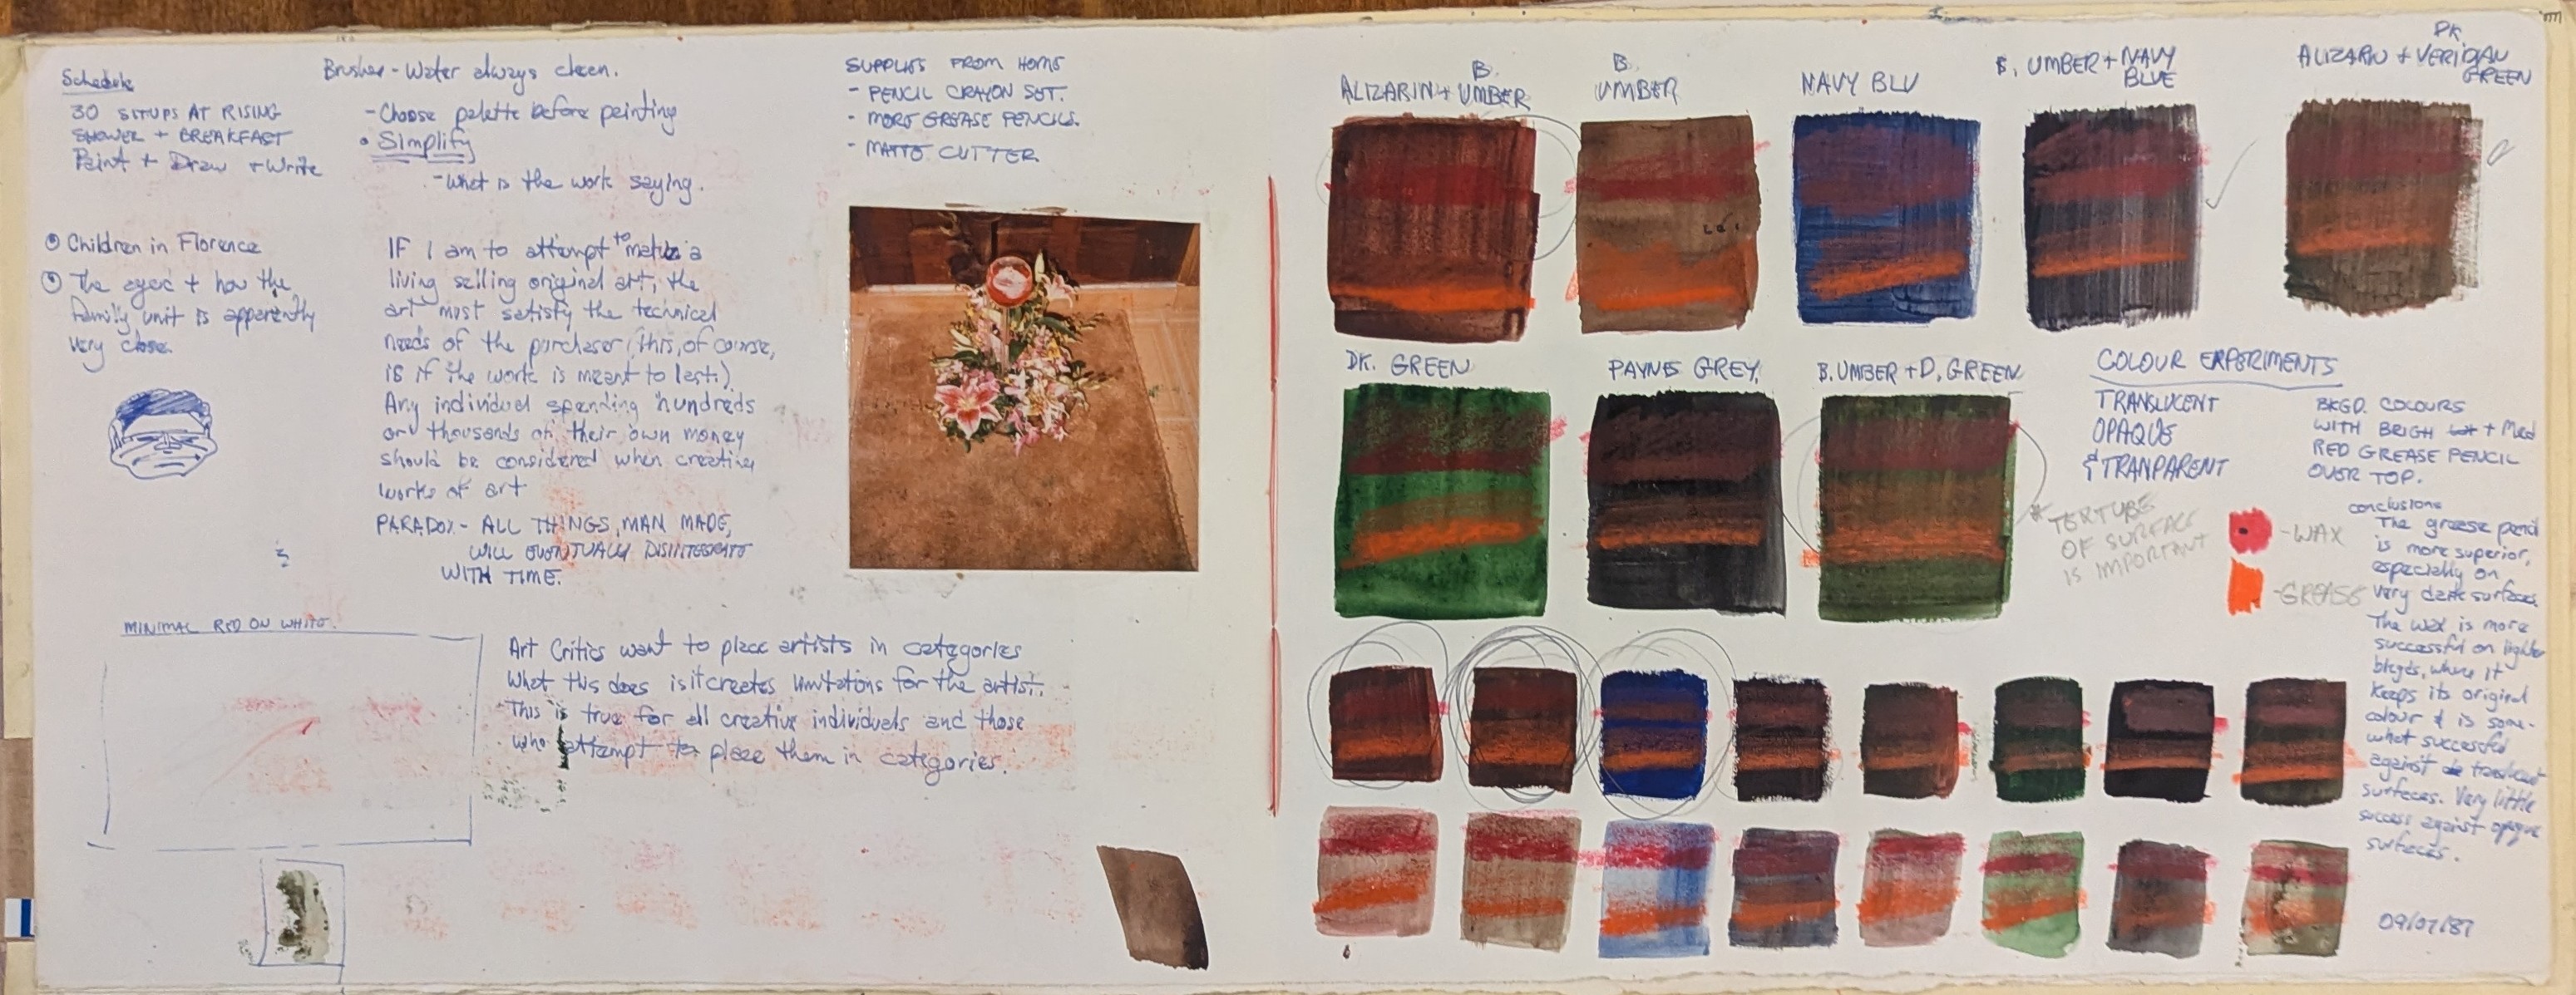 Schedule
30 SITUPS AT RISING
SHOWER + BREAKFAST
Paint + Draw + Write
Brushes - Water always clean.
- Choose palette before painting
• Simplify
- What is the work saying.
SUPPLIES FROM HOME
- PENCIL CRAYON SET.
- MORE GREASE PENCILS.
- MATTE CUTTER
Children in Florence
The eyes + how the
family unit is apparently
very close.
IF I am to attempt to make a
living selling original art, the
art must satisfy the technical
needs of the purchaser (this, of course,
is if the work is meant to last.)
Any individual spending hundreds
or thousands of their own money
should be considered when creating
works of art
PARADOX - ALL THINGS, MAN MADE,
WILL EVENTUALLY DISINTEGRATE
WITH TIME.
MINIMAL RED ON WHITE.
Art Critics want to place artists in categories
What this does is it creates limitations for the artist.
This is true for all creative individuals and those
who attempt to place them in categories.
ALIZARIN + B. UMBER
B. UMBER
NAVY BLU
B. UMBER + NAVY
BLUE
DK.
ALIZARIN + VERIDIAN
GREEN
DK. GREEN
PAYNE GREY.
B. UMBER + D. GREEN
COLOUR EXPERIMENTS
TRANSLUCENT
OPAQUE
& TRANPARENT
BKGD. COLOURS
WITH BRIGH + Med
RED GREASE PENCIL
OVER TOP.
* TEXTURE
OF SURFACE
IS IMPORTANT
- WAX
- GREASE
conclusions
The grease pencil
is more superior,
especially on
very dark surfaces.
The wax is more
successful on lighter
bkgds, where it
keeps its original
colour & is some-
what successful
against translucent
surfaces. Very little
success against opaque
surfaces.
09/07/87